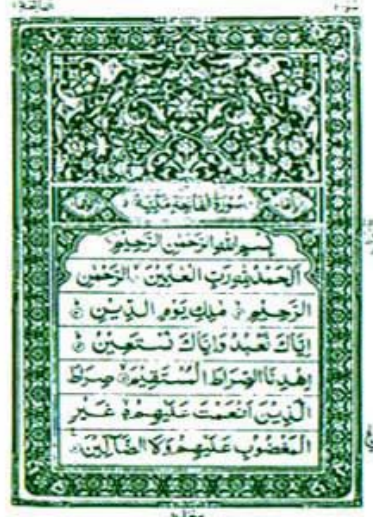 الفاتحة ١
سُورَةُ الْفَاتِحَةِ مَكِّيَّةٌ
بِسْمِ اللهِ الرَّحْمٰنِ الرَّحِيْمِ
اَلْحَمْدُ لِلّٰهِ رَبِّ الْعٰلَمِيْنَ الرَّحْمٰنِ
الرَّحِيْمِ مٰلِكِ يَوْمِ الدِّيْنِ
اِيَّاكَ نَعْبُدُ وَاِيَّاكَ نَسْتَعِيْنُ
اِهْدِنَا الصِّرَاطَ الْمُسْتَقِيْمَ صِرَاطَ
الَّذِيْنَ اَنْعَمْتَ عَلَيْهِمْ غَيْرِ
الْمَغْضُوْبِ عَلَيْهِمْ وَلَا الضَّآلِّيْنَ